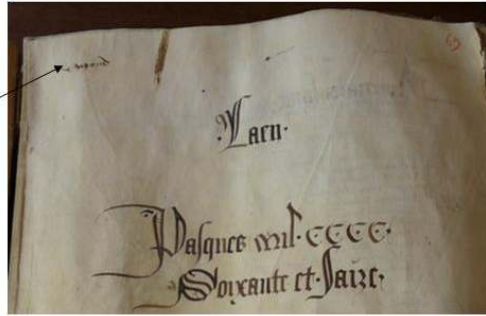 Caen.
Pasques mil. CCCC.
Soixante et Saize.